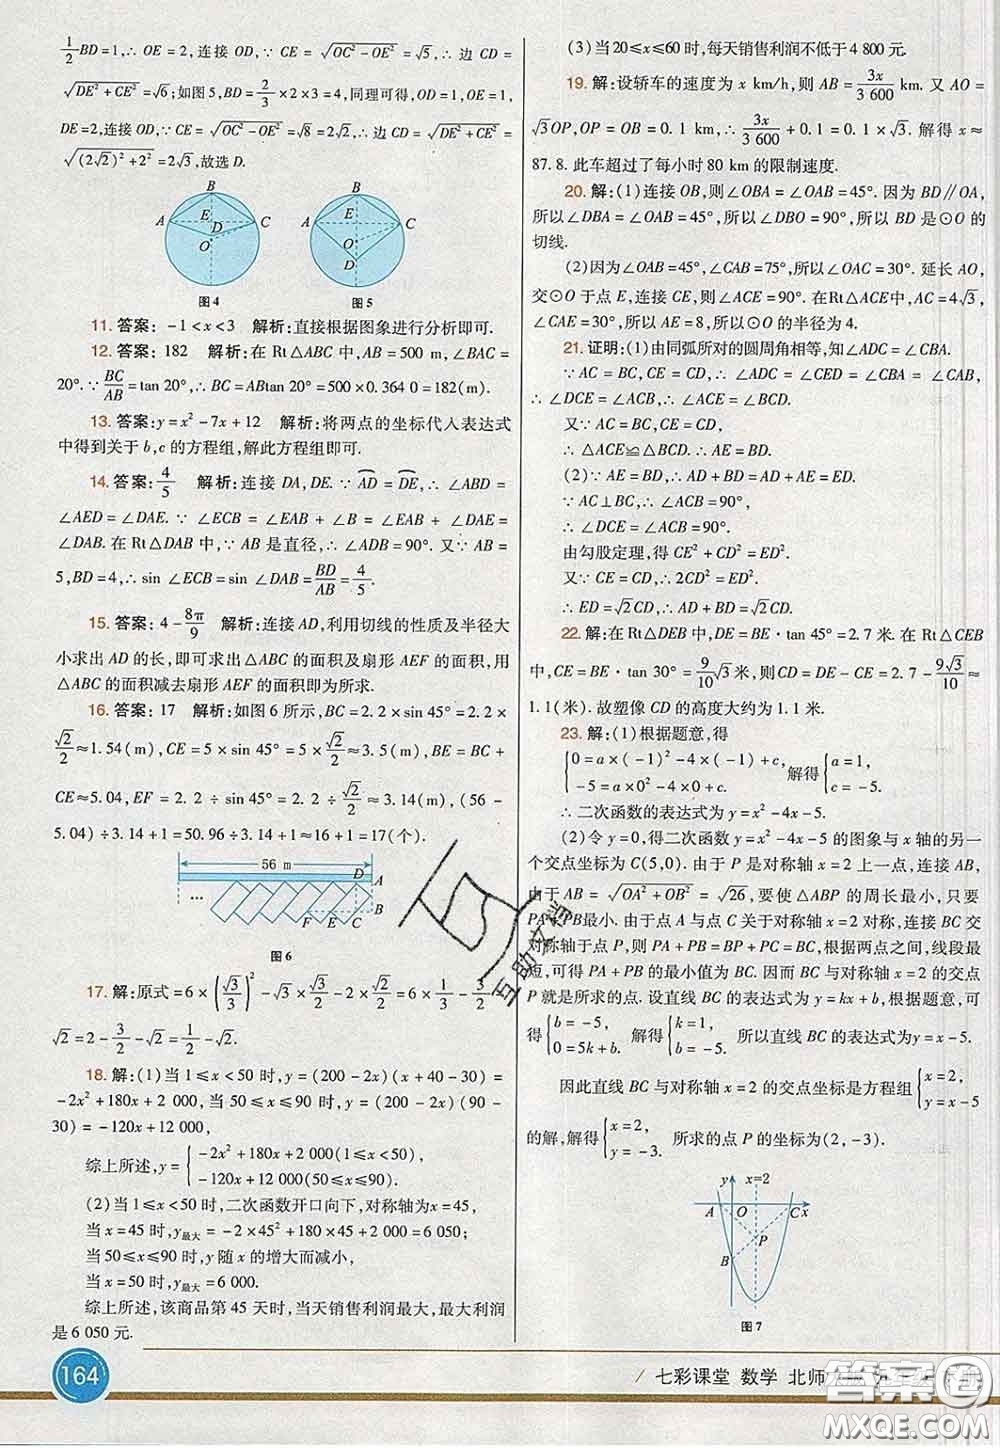 1/2 BD=1,∴OE=2,连接OD,∵CE=√(OC²-OE²)=√5,∴边CD=
√(DE²+CE²)=√6;如图5,BD=2/3×2×3=4,同理可得,OD=1,OE=1,
DE=2,连接OD,∵CE=√(OC²-OE²)=√8=2√2,∴边CD=√(DE²+CE²)=
√((2√2)²+2²)=2√3,故选D.
B
A E D C
O
图4
B
A E C
O
D
图5
11. 答案:-1<x<3 解析:直接根据图象进行分析即可.
12. 答案:182 解析:在Rt△ABC中,AB=500 m,∠BAC=
20°.∵BC/AB=tan 20°,∴BC=ABtan20°=500×0.364 0=182(m).
13. 答案:y=x²-7x+12 解析:将两点的坐标代入表达式
中得到关于b,c的方程组,解此方程组即可.
14. 答案:4/5 解析:连接DA,DE.∵AD⌒=DE⌒,∴∠ABD=
∠AED=∠DAE.∵∠ECB=∠EAB+∠B=∠EAB+∠DAE=
∠DAB.在Rt△DAB中,∵AB是直径,∴∠ADB=90°.又∵AB=
5,BD=4,∴sin∠ECB=sin∠DAB=BD/AB=4/5.
15. 答案:4-8π/9 解析:连接AD,利用切线的性质及半径大
小求出AD的长,即可求出△ABC的面积及扇形AEF的面积,用
△ABC的面积减去扇形AEF的面积即为所求.
16. 答案:17 解析:如图6所示,BC=2.2×sin 45°=2.2×
√2/2≈1.54(m),CE=5×sin 45°=5×√2/2≈3.5(m),BE=BC+
CE≈5.04,EF=2.2÷sin 45°=2.2÷√2/2≈3.14(m),(56-
5.04)÷3.14+1=50.96÷3.14+1≈16+1=17(个).
56 m
D A
… …
F E C B
图6
17. 解:原式=6×(√3/3)²-√3×√3/2-2×√2/2=6×1/3-3/2-
√2=2-3/2-√2=1/2-√2.
18. 解:(1)当1≤x<50时,y=(200-2x)(x+40-30)=
-2x²+180x+2 000,当50≤x≤90时,y=(200-2x)(90-
30)=-120x+12 000,
综上所述,y={-2x²+180x+2 000(1≤x<50),
-120x+12 000(50≤x≤90).
(2)当1≤x<50时,二次函数开口向下,对称轴为x=45,
当x=45时,y最大=-2×45²+180×45+2 000=6 050;
当50≤x≤90时,y随x的增大而减小,
当x=50时,y最大=6 000.
综上所述,该商品第45天时,当天销售利润最大,最大利润
是6 050元.
(3)当20≤x≤60时,每天销售利润不低于4 800元.
19. 解:设轿车的速度为x km/h,则AB=3x/3 600 km.又AO=
√3OP,OP=OB=0.1 km,∴3x/3 600+0.1=0.1×√3.解得x≈
87.8.此车超过了每小时80 km的限制速度.
20. 解:(1)连接OB,则∠OBA=∠OAB=45°.因为BD∥OA,
所以∠DBA=∠OAB=45°,所以∠DBO=90°,所以BD是⊙O的
切线.
(2)因为∠OAB=45°,∠CAB=75°,所以∠OAC=30°.延长AO,
交⊙O于点E,连接CE,则∠ACE=90°.在Rt△ACE中,AC=4√3,
∠CAE=30°,所以AE=8,所以⊙O的半径为4.
21. 证明:(1)由同弧所对的圆周角相等,知∠ADC=∠CBA.
∵AC=BC,CE=CD,∴∠ADC=∠CED=∠CBA=∠CAB,
∴∠DCE=∠ACB,∴∠ACE=∠BCD.
又∵AC=BC,CE=CD,
∴△ACE≌△BCD.∴AE=BD.
(2)∵AE=BD,∴AD+BD=AD+AE=ED.
∵AC⊥BC,∴∠ACB=90°,
∴∠DCE=∠ACB=90°.
由勾股定理,得CE²+CD²=ED².
又∵CE=CD,∴2CD²=ED².
∴ED=√2CD,∴AD+BD=√2CD.
22. 解:在Rt△DEB中,DE=BE·tan 45°=2.7米.在Rt△CEB
中,CE=BE·tan 30°=9/10√3米,则CD=DE-CE=2.7-9√3/10≈
1.1(米).故塑像CD的高度大约为1.1米.
23. 解:(1)根据题意,得
{0=a×(-1)²-4×(-1)+c, 解得{a=1,
-5=a×0²-4×0+c. c=-5.
∴二次函数的表达式为y=x²-4x-5.
(2)令y=0,得二次函数y=x²-4x-5的图象与x轴的另一
个交点坐标为C(5,0).由于P是对称轴x=2上一点,连接AB,
由于AB=√(OA²+OB²)=√26,要使△ABP的周长最小,只要
PA+PB最小.由于点A与点C关于对称轴x=2对称,连接BC交
对称轴于点P,则PA+PB=BP+PC=BC,根据两点之间,线段最
短,可得PA+PB的最小值为BC.因而BC与对称轴x=2的交点
P就是所求的点.设直线BC的表达式为y=kx+b,根据题意,可
得{b=-5, 解得{k=1, 所以直线BC的表达式为y=x-5.
0=5k+b. b=-5.
因此直线BC与对称轴x=2的交点坐标是方程组{x=2,
y=x-5
的解,解得{x=2, 所求的点P的坐标为(2,-3).
y=-3.
y x=2
A O C x
P
B
图7
互助文档
164
七彩课堂 数学 北师
答案圈
MXQE.COM